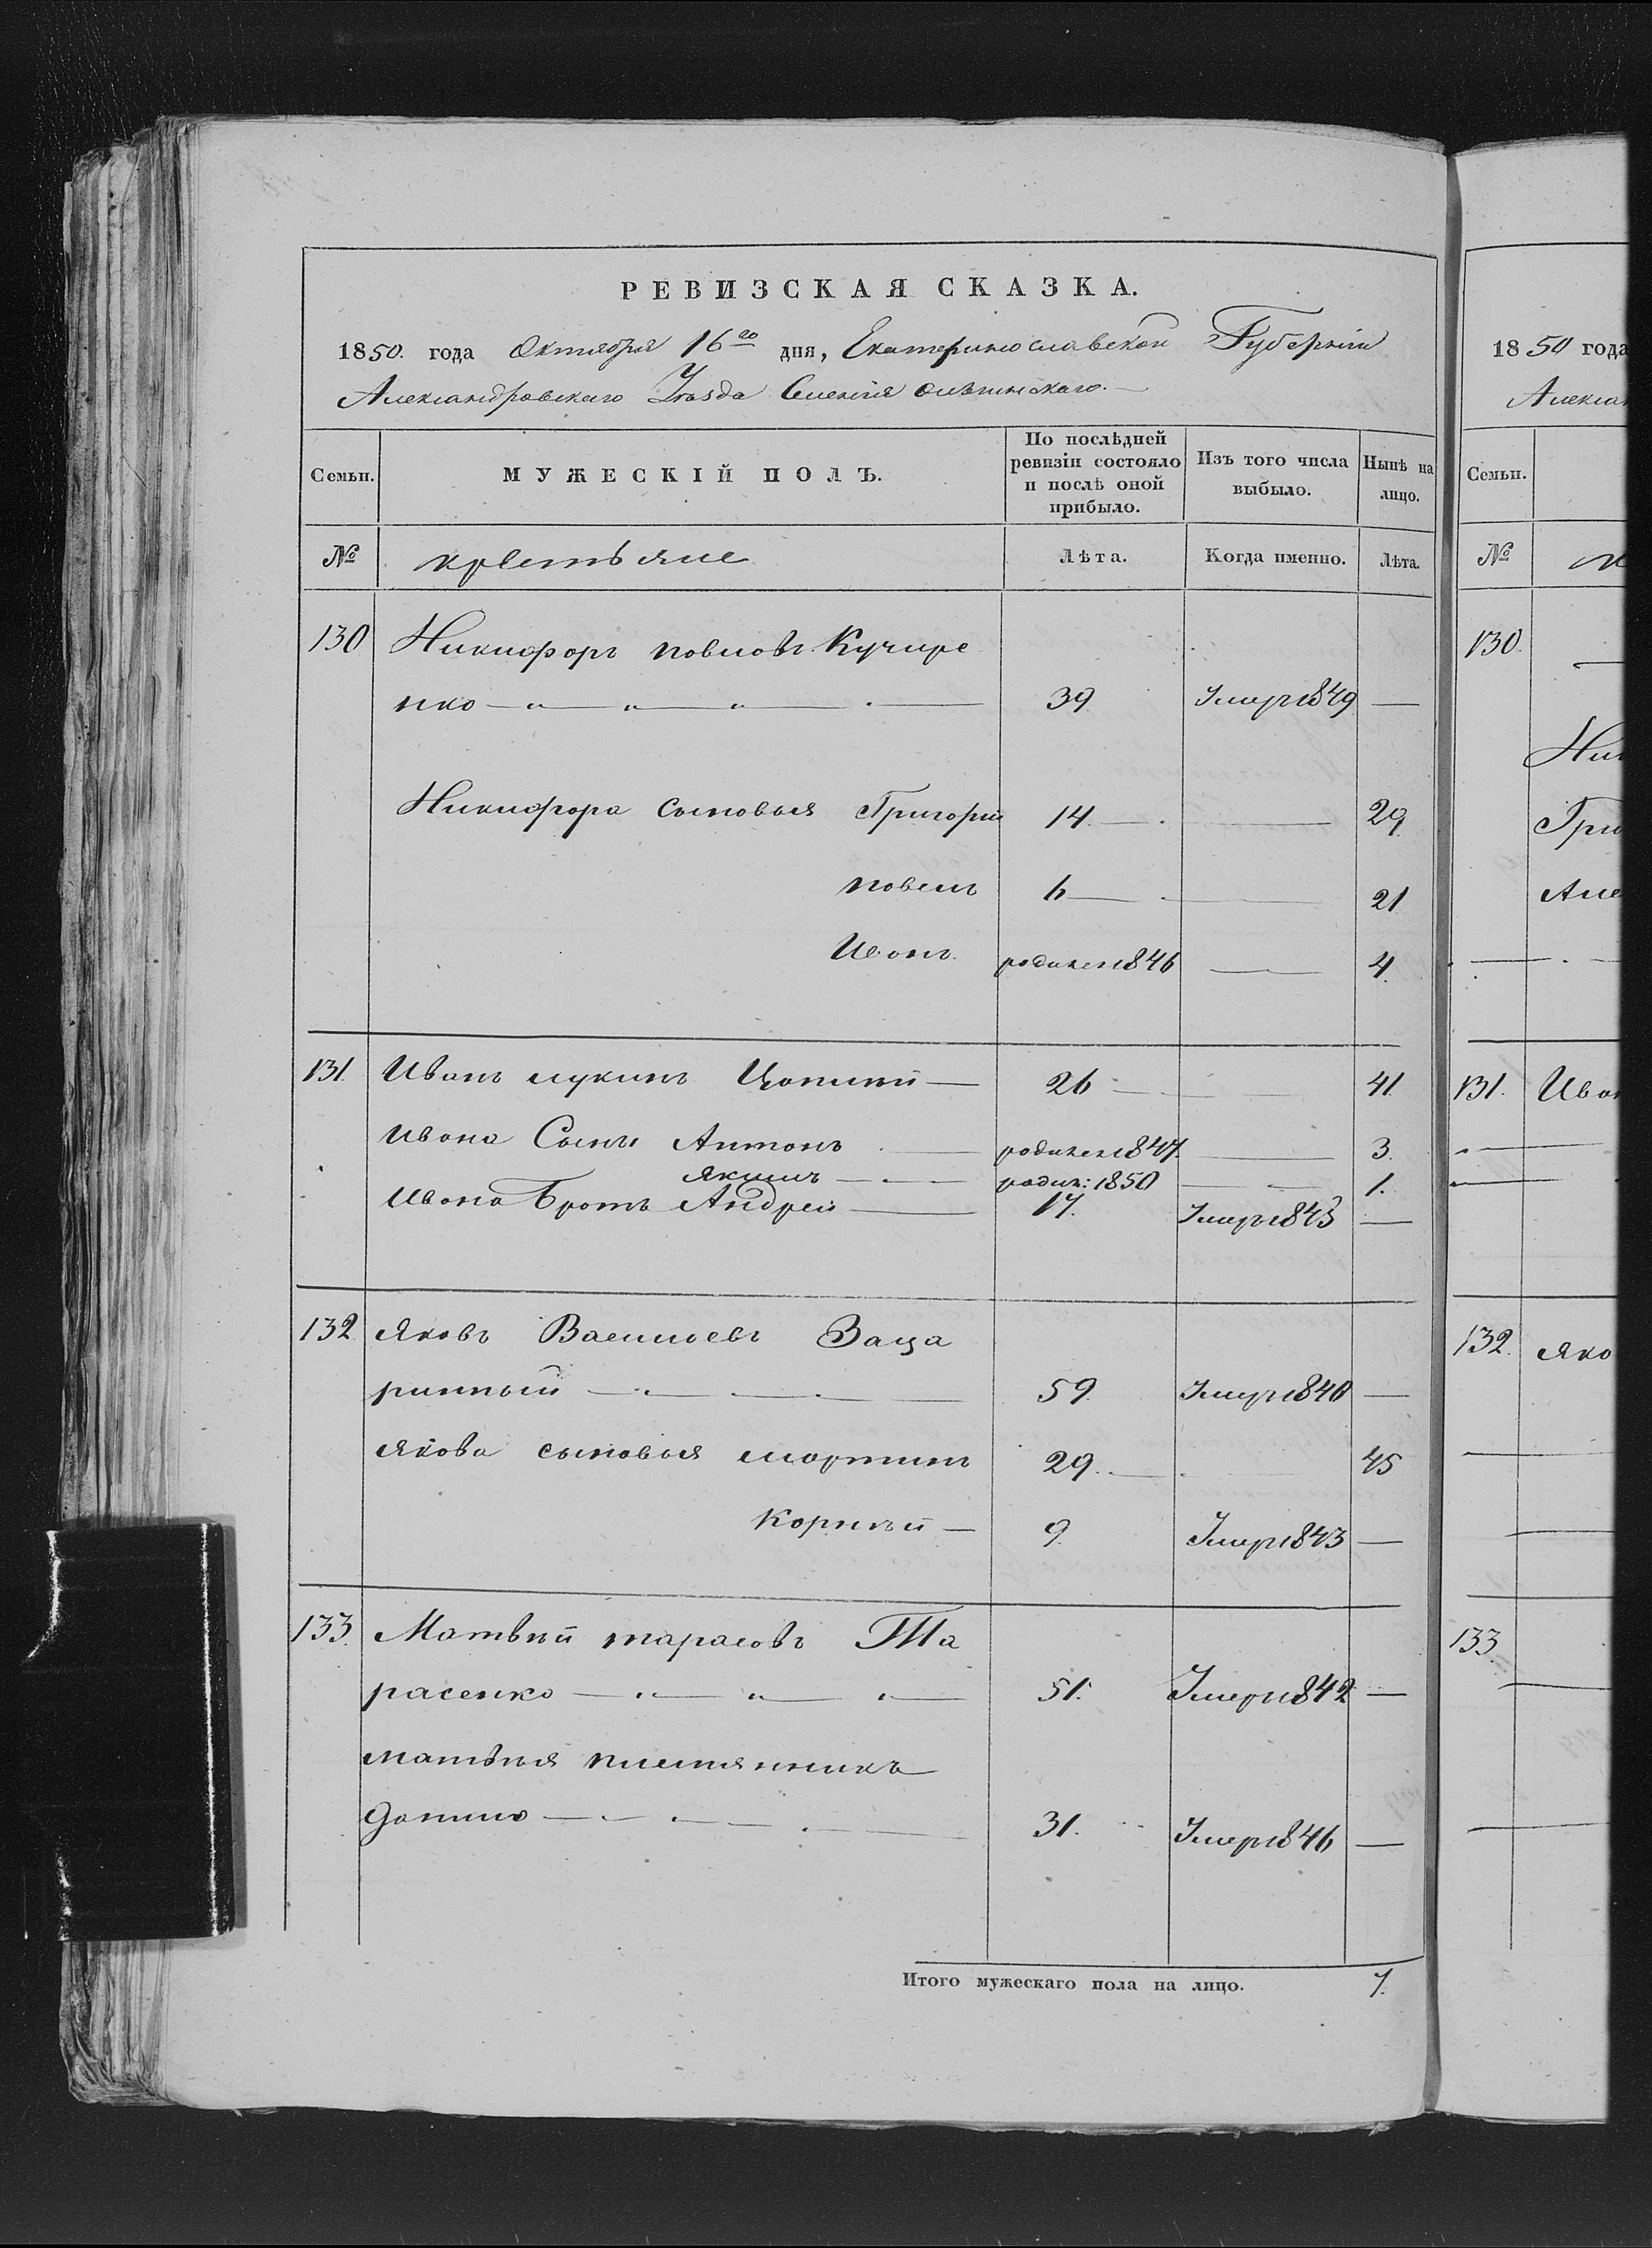 РЕВИЗСКАЯ СКАЗКА.
1850. года Октября 16го дня, Екатеринославской Губерніи
Александровскаго Уезда Селенія
Семьи. МУЖЕСКІЙ ПОЛЪ. По послѣдней ревизіи состояло и послѣ оной прибыло. Изъ того числа выбыло. Нынѣ на лицо.
№ крестьяне Лѣта. Когда именно. Лѣта.
130 Никифоръ повловъ Кучире
нко 39 Умеръ 1849 —
Никифора сыновья Григорій 14. — 29.
повелъ 6 — 21
Ивонъ. родился 1846 — 4.
131. Ивонъ лукинъ 26 — 41.
Ивона Сынъ Антонъ — родился 1847. — 3.
Якимъ — родил: 1850 — 1.
Ивона Бротъ Андрей — 17. Умеръ 1843 —
132. Яковъ Васильевъ Заца
ринный — 59. Умеръ 1840 —
Якова сыновья мортинъ 29. — 45
Корнѣй — 9. Умеръ 1843 —
133. Мотвѣй тарасовъ Та
расенко — 51. Умеръ 1842 —
матвѣя племянникъ
Донило — 31. Умеръ 1846 —
Итого мужескаго пола на лицо. 7.
1850 года
Алексан
Семьи.
№
130.
Ник
Гри
Але
131. Иво
132. Яко
133.